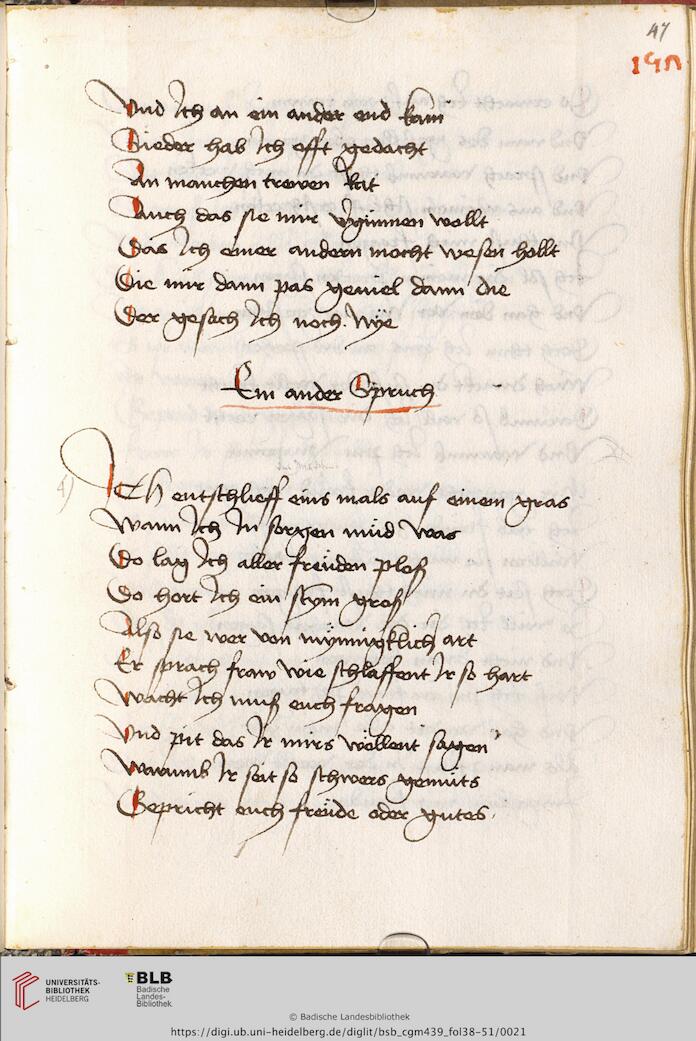 47
Vnd Ich an ein ander end kam
Wieder hab Ich offt gedacht
An manchen treven Rit
Auch das sie mir vginnen wollt
Das Ich einer andern mocht wesen hollt
Die mir dann pas geuiel dann die
Der gesach Ich noch nÿe
Ein ander Spruch
4)
ICh entschlieff eins mals auf einem gras
Wann Ich In sorgen müd was
Do lag Ich aller freüden ploß
Do hort Ich ein stym groß
Also sie wer von mynnigklich art
Er sprach fraw wie schlaffent Ir so hart
Wacht Ich muß euch fragen
Vnd pit das Ir mirs wöllent sagen
Warumb Ir seit so schwers gemüts
Gepricht euch freüde oder gutes
UNIVERSITÄTS-
BIBLIOTHEK
HEIDELBERG
BLB
Badische
Landes-
Bibliothek
© Badische Landesbibliothek
https://digi.ub.uni-heidelberg.de/diglit/bsb_cgm439_fol38-51/0021